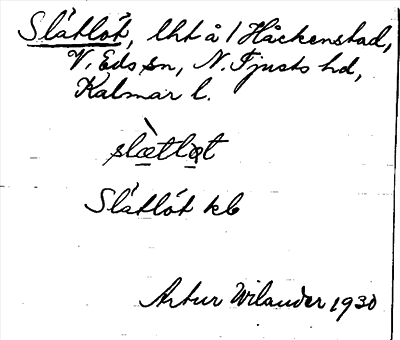 Slåtlöt, lht å / Håckenstad,
V. Eds sn, N. Tjusts hd,
Kalmar l.
slæ̀tlət
Slåtlöt kb
Artur Wilander 1930